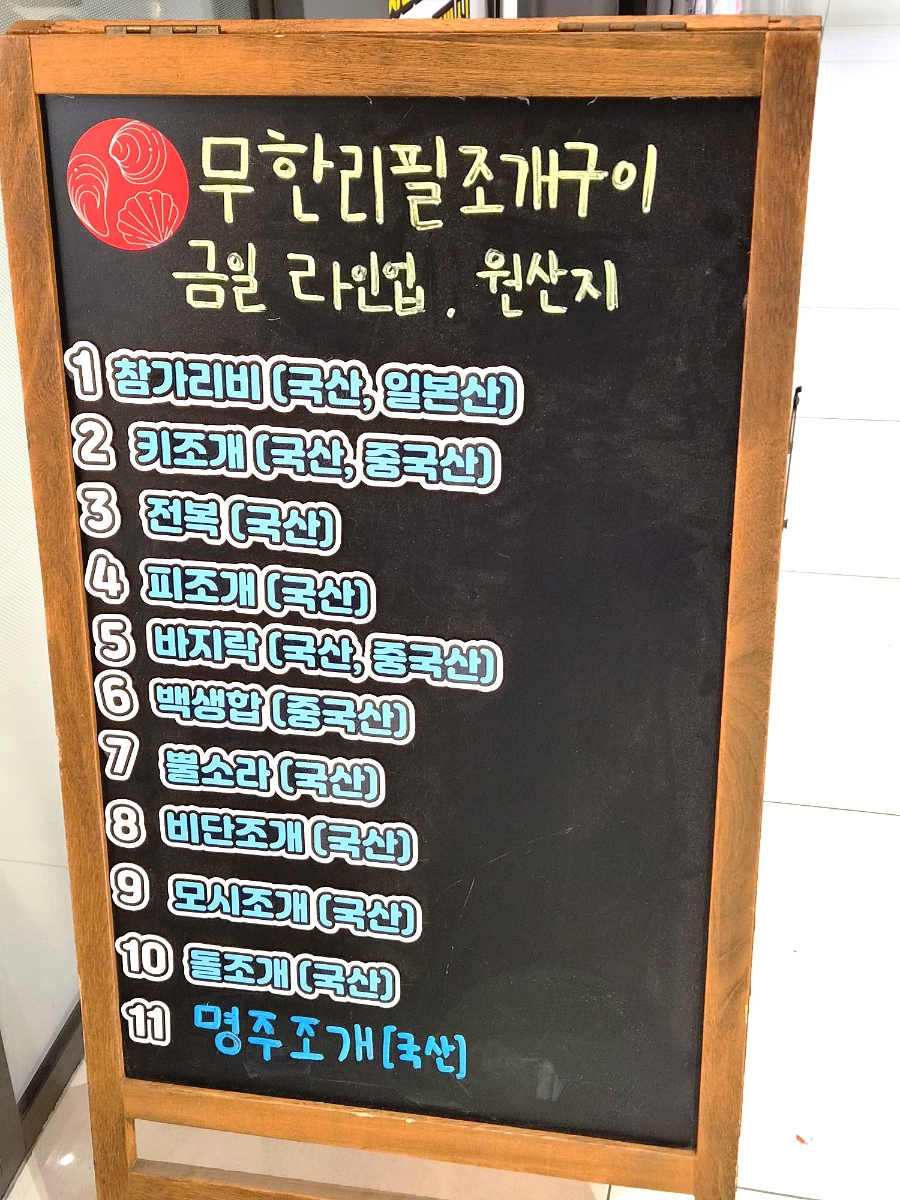 무한리필조개구이
금일 라인업. 원산지
1 참가리비 (국산, 일본산)
2 키조개 (국산, 중국산)
3 전복 (국산)
4 피조개 (국산)
5 바지락 (국산, 중국산)
6 백생합 (중국산)
7 뿔소라 (국산)
8 비단조개 (국산)
9 모시조개 (국산)
10 돌조개 (국산)
11 명주조개 (국산)